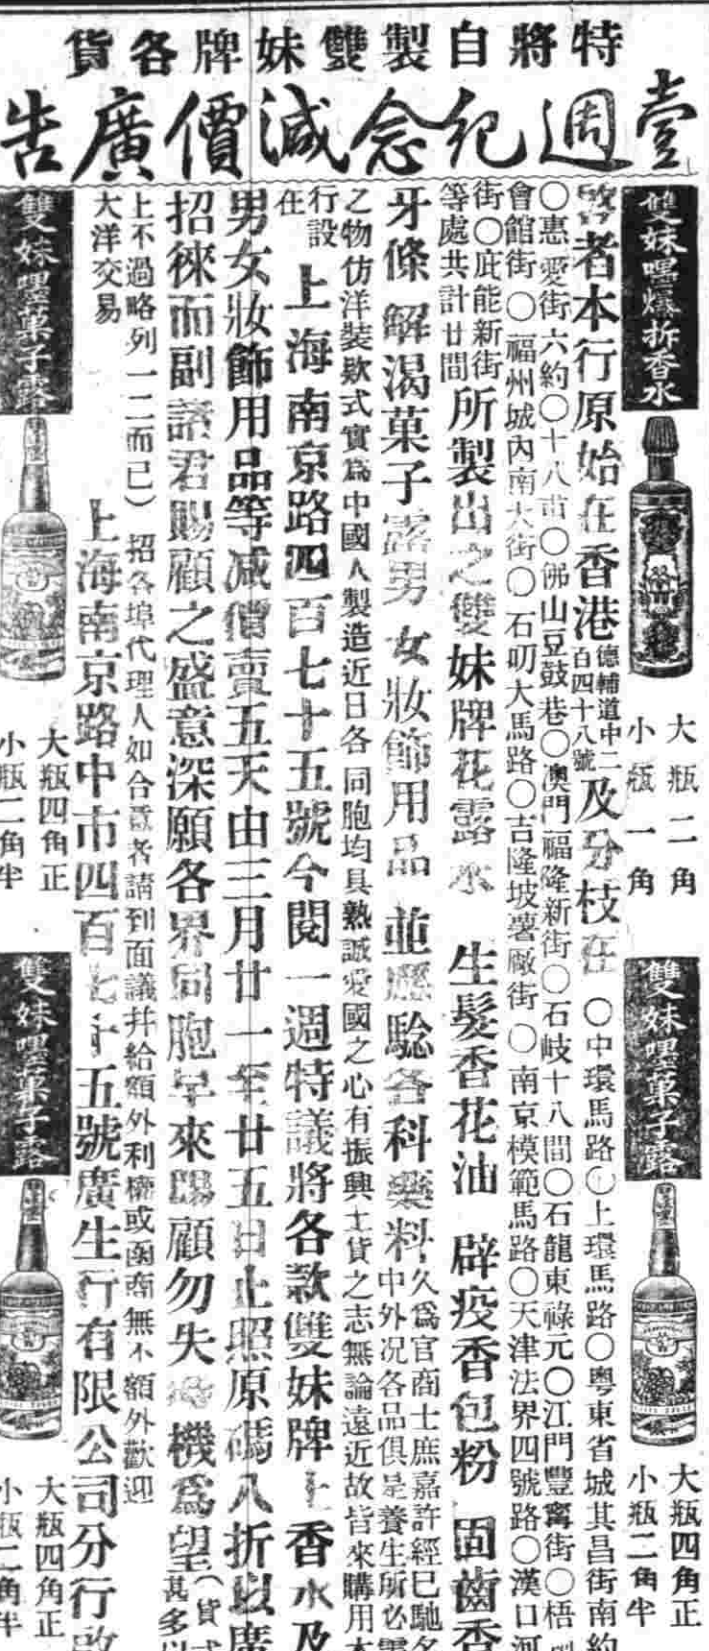 特將自製雙妹牌各貨
壹週紀念減價廣告
雙妹嚜爆拆香水
大瓶二角
小瓶一角
雙妹嚜菓子露
大瓶四角正
小瓶二角半
啓者本行原始在香港德輔道中二百四十八號及分枝在○中環馬路○上環馬路○粵東省城其昌街南約
○惠愛街六約○十八甫○佛山豆鼓巷○澳門福隆新街○石岐十八間○石龍東祿元○江門豐寗街○梧
會館街○福州城內南大街○石叻大馬路○吉隆坡薯廠街○南京模範馬路○天津法界四號路○漢口河
街○庇能新街
等處共計廿間所製出之雙妹牌花露水 生髮香花油 辟疫香包粉 固齒香
牙條 解渴菓子露男女妝飾用品 並應驗各科藥料久爲官商士庶嘉許經已馳名
中外况各品俱是養生所必需
之物仿洋裝欵式實爲中國人製造近日各同胞均具熱誠愛國之心有振興土貨之志無論遠近故皆來購用本
行設
在上海南京路四百七十五號今閱一週特議將各款雙妹牌上香水及
男女妝飾用品等減價賣五天由三月廿一至廿五日止照原碼八折以廣
招徠而副諸君賜顧之盛意深願各界同胞早來賜顧勿失時機爲望(貨式
甚多以
上不過略列一二而已)招各埠代理人如合意者請到面議幷給額外利權或函商無不額外歡迎
大洋交易
上海南京路中市四百七十五號廣生行有限公司分行啟
雙妹嚜菓子露
大瓶四角正
小瓶二角半
雙妹嚜菓子露
大瓶四角正
小瓶二角半